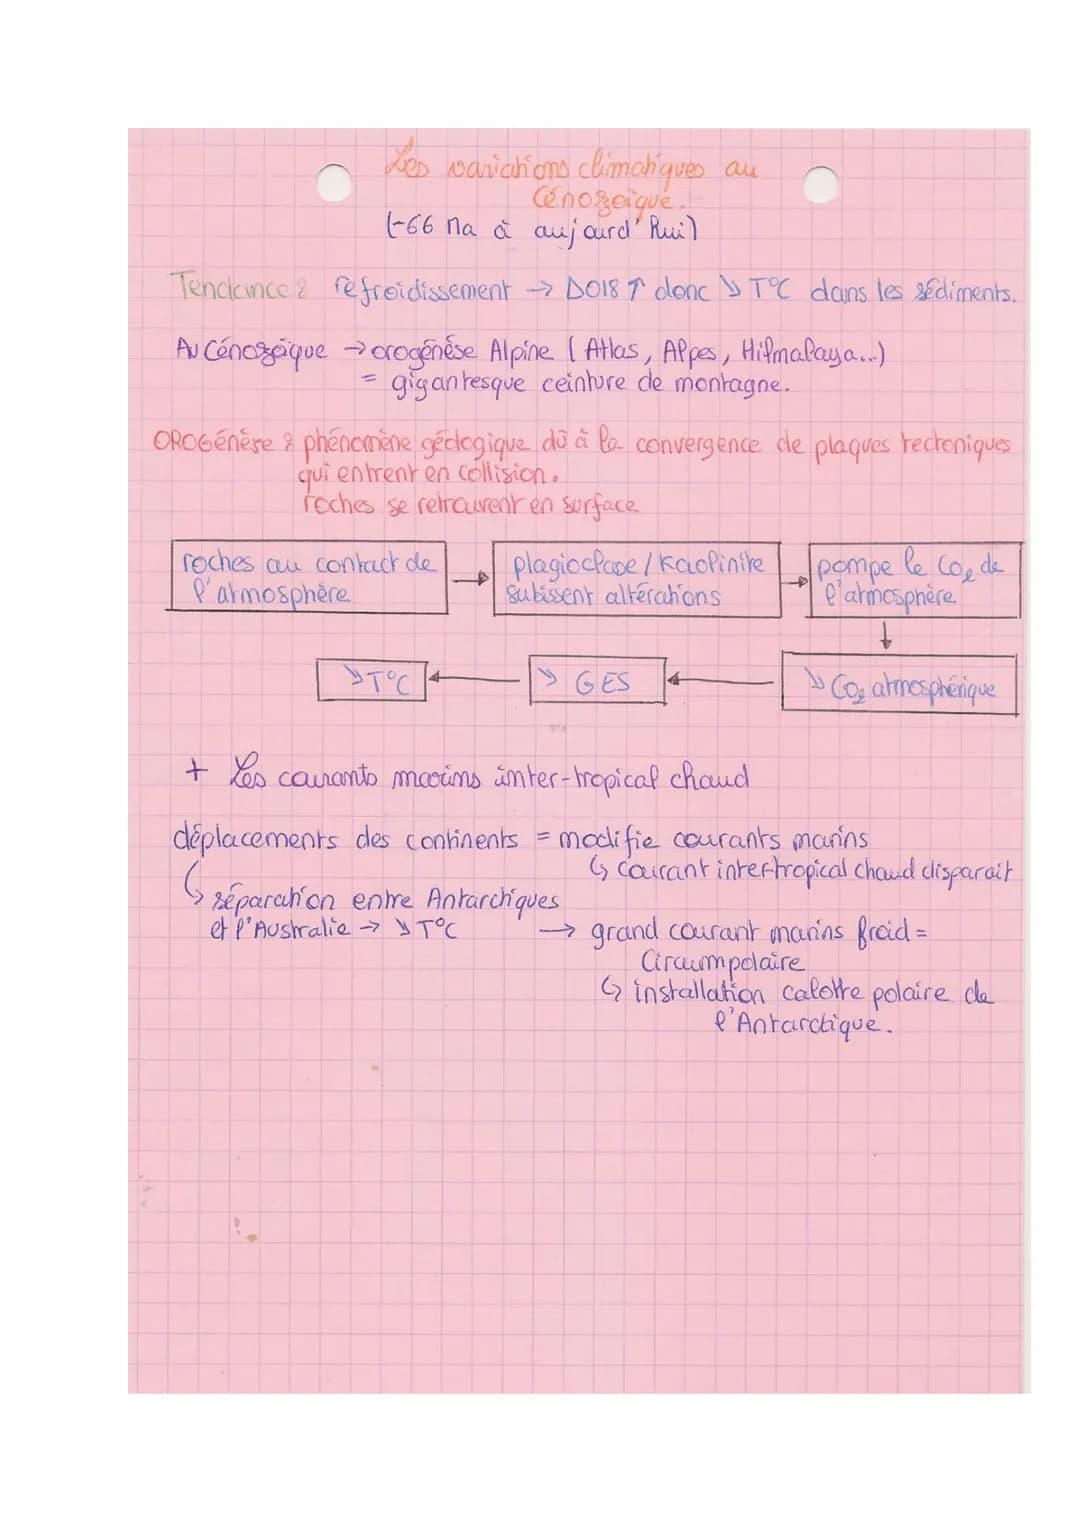 Les variations climatiques au
Cénozoïque.
(-66 Ma à aujourd'hui)
Tendance : refroidissement → DO18 ↑ donc ↘ T°C dans les sédiments.
Au Cénozoïque → orogénèse Alpine (Atlas, Alpes, Hilmalaya...)
= gigantesque ceinture de montagne.
OROGénèse : phénomène géologique dû à la convergence de plaques tectoniques
qui entrent en collision.
roches se retrouvent en surface
roches au contact de
l'atmosphère
→ plagioclase / Kaolinite
subissent altérations
→ pompe le CO2 de
l'atmosphère.
↓
↘ T°C ← ↘ GES ← ↘ CO2 atmosphérique
+ Les courants marins inter-tropical chaud
déplacements des continents = modifie courants marins
↳ courant inter-tropical chaud disparait
↳ séparation entre Antarctiques
et l'Australie → ↘ T°C
→ grand courant marins froid =
Circumpolaire
↳ installation calotte polaire de
l'Antarctique.